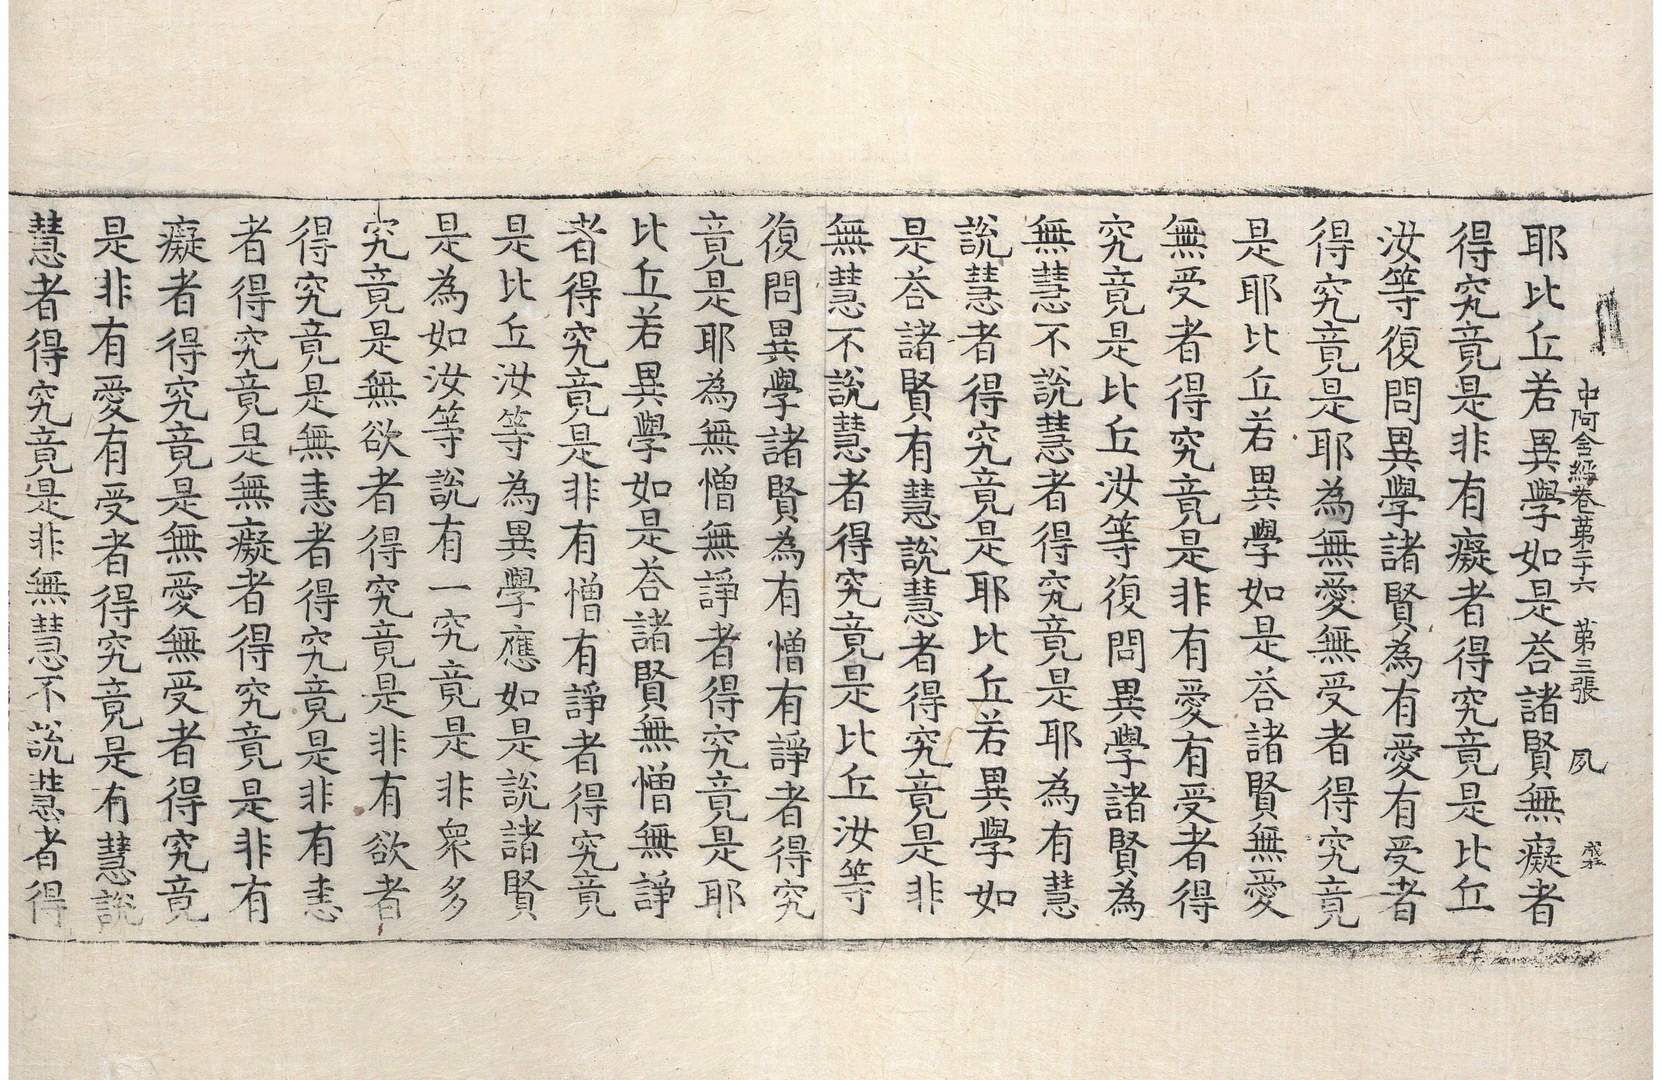 中阿含經卷第二十六 第三張 夙
耶比丘若異學如是荅諸賢無癡者
得究竟是非有癡者得究竟是比丘
汝等復問異學諸賢為有愛有受者
得究竟是耶為無愛無受者得究竟
是耶比丘若異學如是荅諸賢無愛
無受者得究竟是非有愛有受者得
究竟是比丘汝等復問異學諸賢為
無慧不說慧者得究竟是耶為有慧
說慧者得究竟是耶比丘若異學如
是荅諸賢有慧說慧者得究竟是非
無慧不說慧者得究竟是比丘汝等
復問異學諸賢為有憎有諍者得究
竟是耶為無憎無諍者得究竟是耶
比丘若異學如是荅諸賢無憎無諍
者得究竟是非有憎有諍者得究竟
是比丘汝等為異學應如是說諸賢
是為如汝等說有一究竟是非衆多
究竟是無欲者得究竟是非有欲者
得究竟是無恚者得究竟是非有恚
者得究竟是無癡者得究竟是非有
癡者得究竟是無愛無受者得究竟
是非有愛有受者得究竟是有慧說
慧者得究竟是非無慧不說慧者得